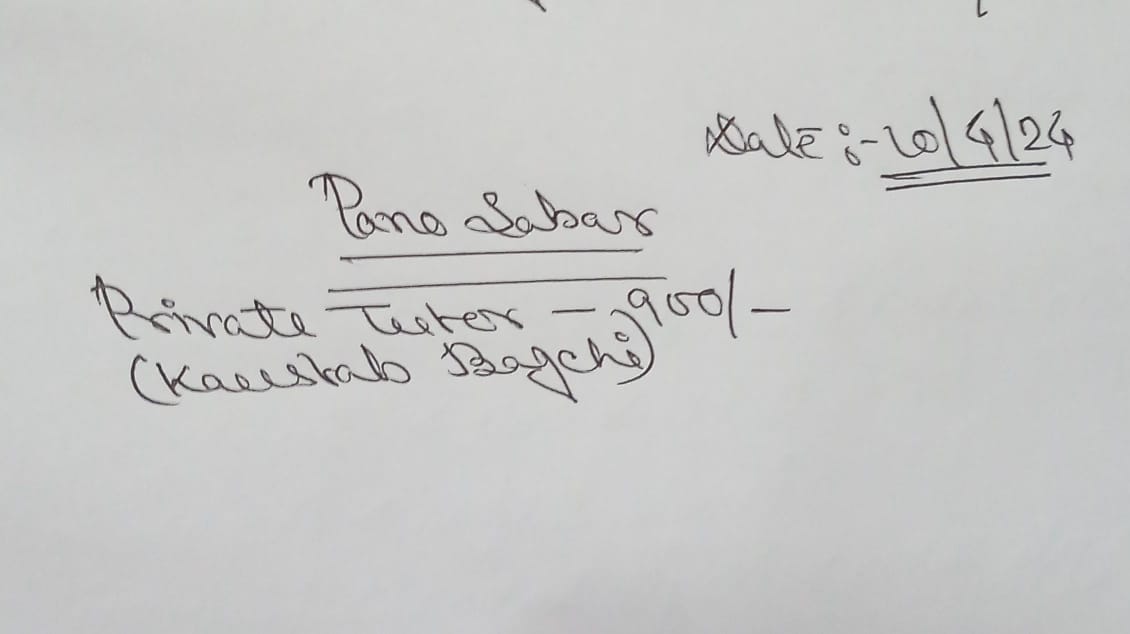 Date :- 10/4/24
Pano Sabar
Private Tutor - 900/-
(Kaustab Bagchi)